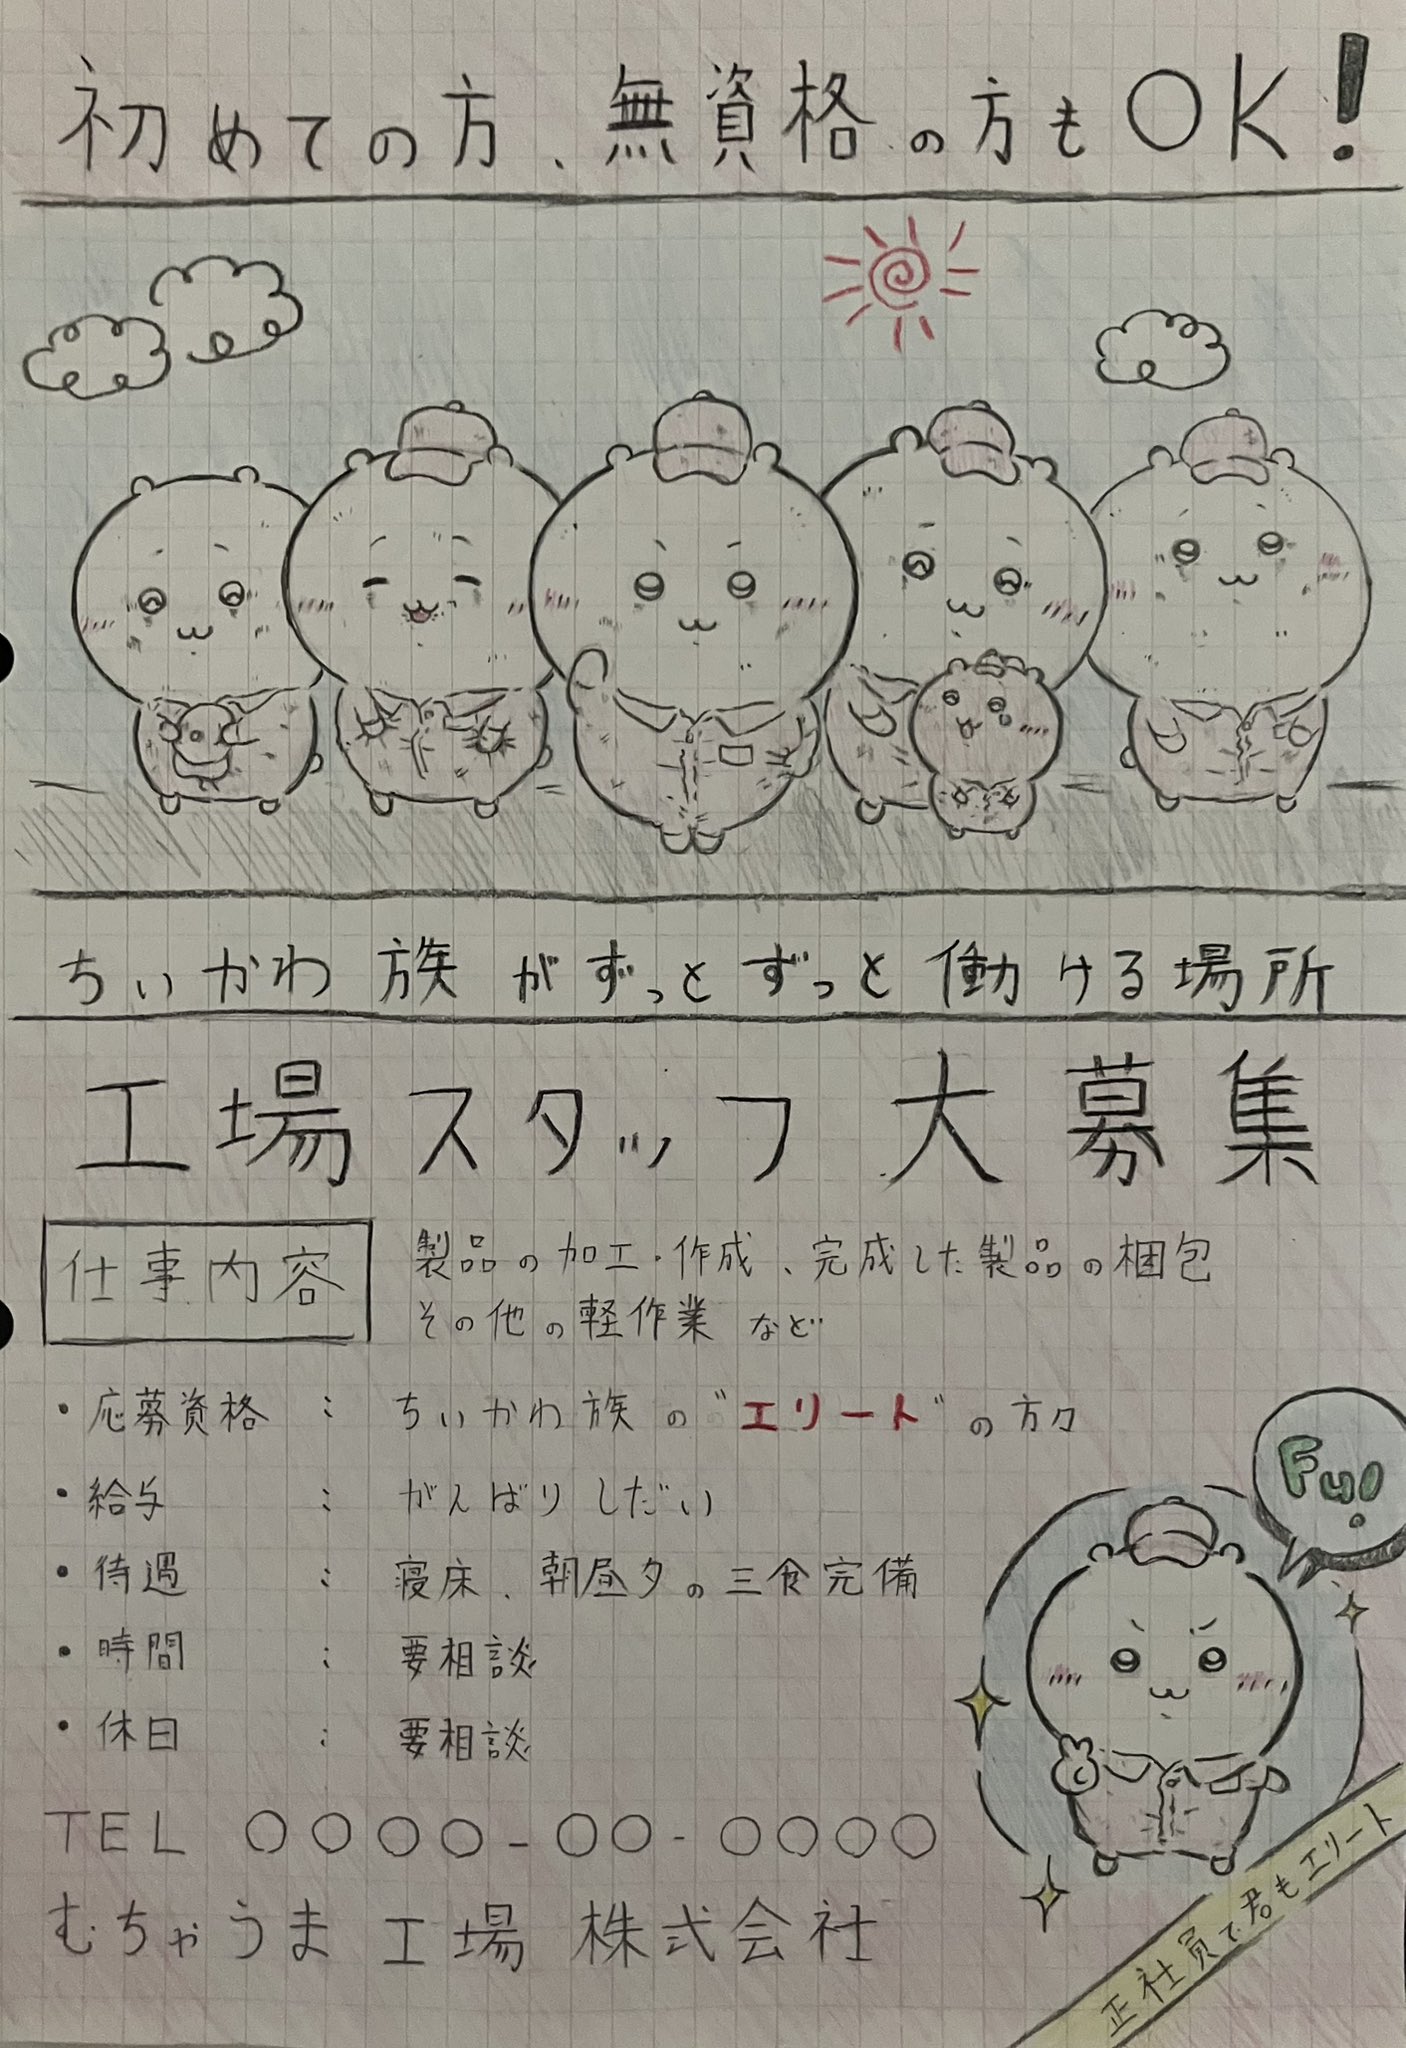 初めての方、無資格の方もOK!
ちいかわ族がずっとずっと働ける場所
工場スタッフ大募集
仕事内容
製品の加工・作成、完成した製品の梱包
その他の軽作業 など
・応募資格 : ちいかわ族の"エリート"の方々
・給与 : がんばりしだい
・待遇 : 寝床、朝昼夕の三食完備
・時間 : 要相談
・休日 : 要相談
Fu!
TEL 〇〇〇〇-〇〇-〇〇〇〇
むちゃうま工場 株式会社
正社員で君もエリート